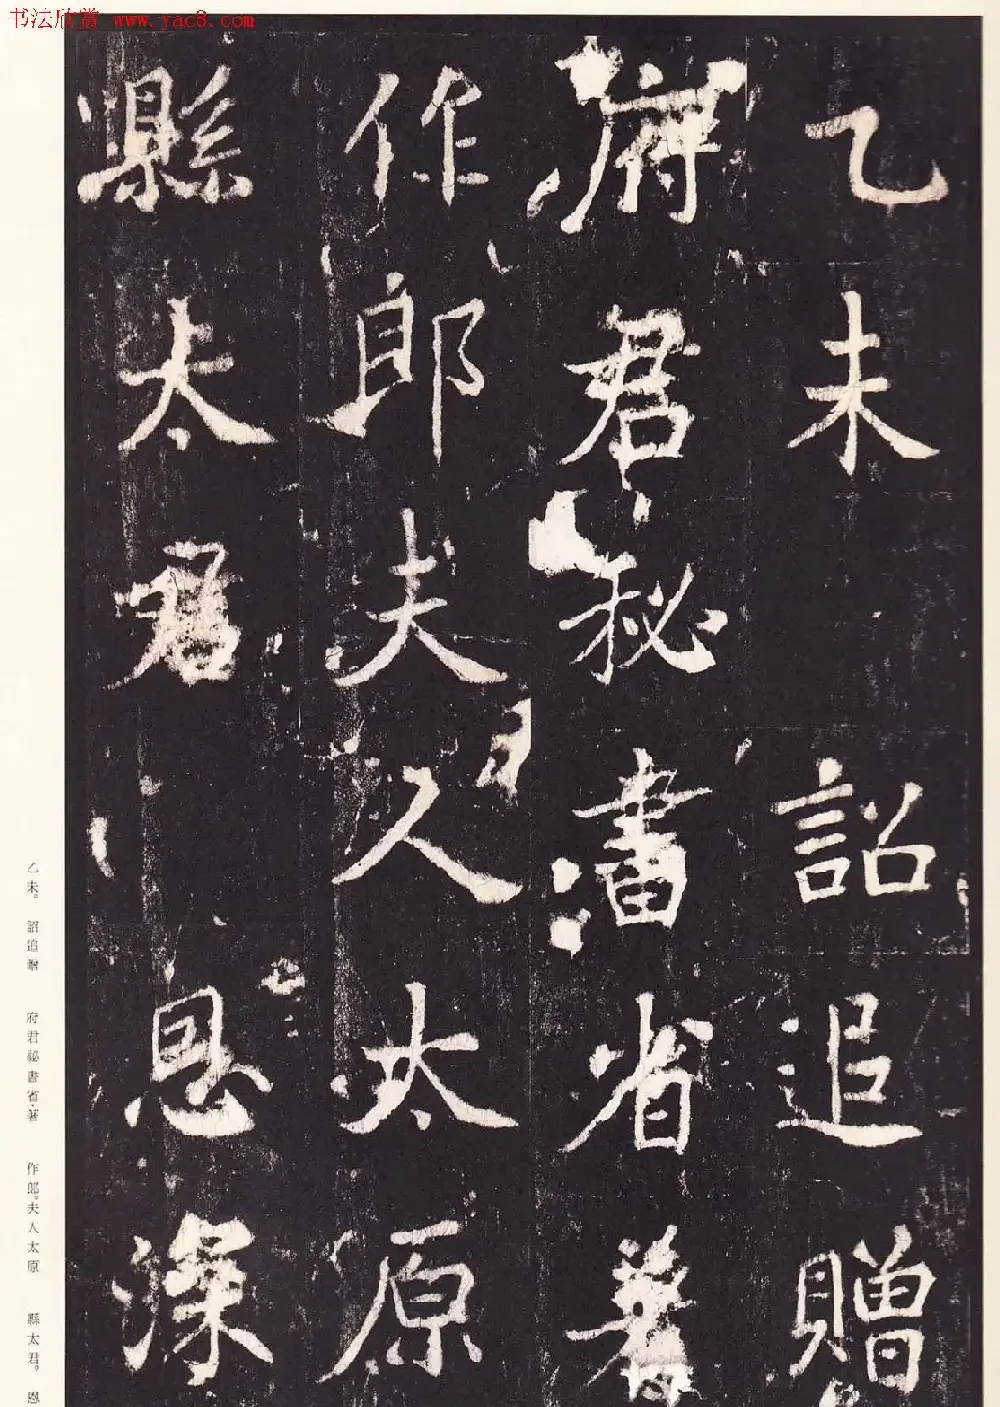 书法欣赏 www.yac8.com
乙未 詔追贈
府君秘書省著
作郎夫人太原
縣太君 恩深
乙未。 詔追贈 府君祕書省著 作郎。夫人太原 縣太君。 恩